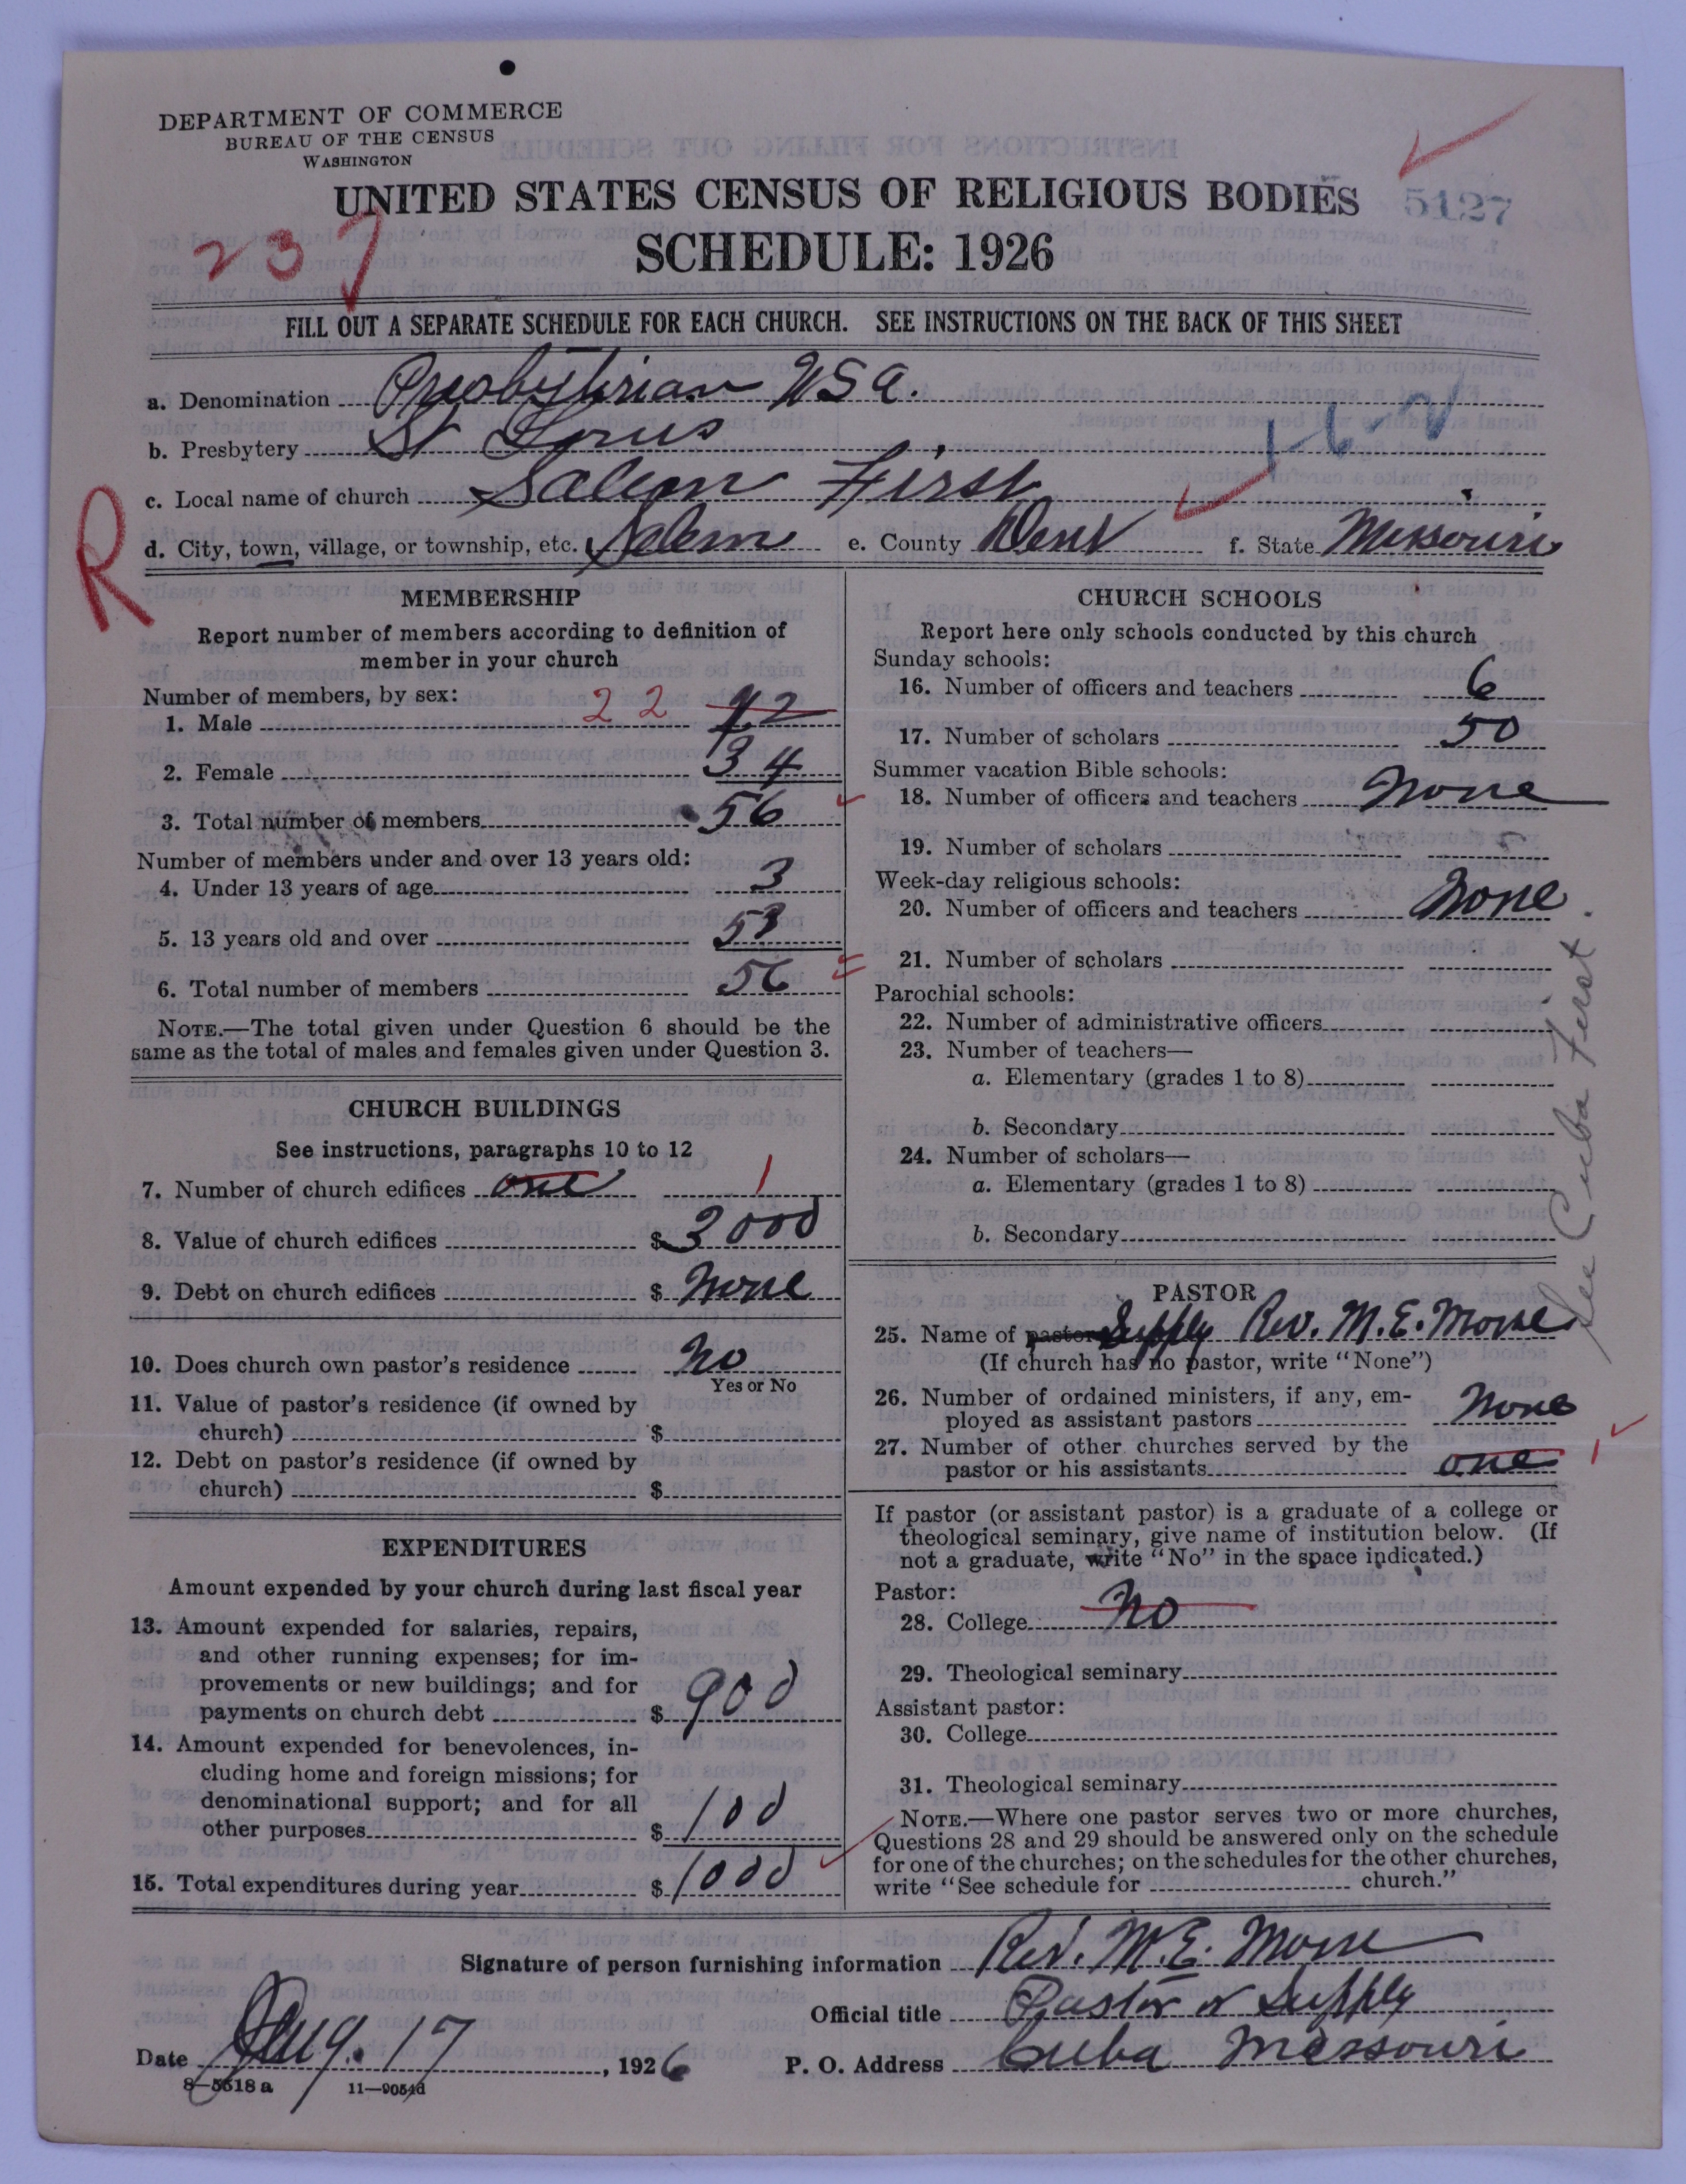 DEPARTMENT OF COMMERCE
BUREAU OF THE CENSUS
WASHINGTON
UNITED STATES CENSUS OF RELIGIOUS BODIES
5127
237
SCHEDULE: 1926
FILL OUT A SEPARATE SCHEDULE FOR EACH CHURCH. SEE INSTRUCTIONS ON THE BACK OF THIS SHEET
a. Denomination Presbyterian USA.
b. Presbytery St Louis
1-6-2
c. Local name of church Salem First
R
d. City, town, village, or township, etc. Salem e. County Dent f. State Missouri
MEMBERSHIP
Report number of members according to definition of
member in your church
Number of members, by sex:
1. Male 22
2. Female 34
3. Total number of members 56
Number of members under and over 13 years old:
4. Under 13 years of age 3
5. 13 years old and over 53
6. Total number of members 56
NOTE.—The total given under Question 6 should be the
same as the total of males and females given under Question 3.
CHURCH BUILDINGS
See instructions, paragraphs 10 to 12
7. Number of church edifices one 1
8. Value of church edifices $ 3000
9. Debt on church edifices $ None
10. Does church own pastor's residence No
Yes or No
11. Value of pastor's residence (if owned by
church) $
12. Debt on pastor's residence (if owned by
church) $
EXPENDITURES
Amount expended by your church during last fiscal year
13. Amount expended for salaries, repairs,
and other running expenses; for im-
provements or new buildings; and for
payments on church debt $ 900
14. Amount expended for benevolences, in-
cluding home and foreign missions; for
denominational support; and for all
other purposes $ 100
15. Total expenditures during year $ 1000
CHURCH SCHOOLS
Report here only schools conducted by this church
Sunday schools:
16. Number of officers and teachers 6
17. Number of scholars 50
Summer vacation Bible schools:
18. Number of officers and teachers None
19. Number of scholars
Week-day religious schools:
20. Number of officers and teachers None
21. Number of scholars
Parochial schools:
22. Number of administrative officers
23. Number of teachers—
a. Elementary (grades 1 to 8)
b. Secondary
24. Number of scholars—
a. Elementary (grades 1 to 8)
b. Secondary
See Cuba First
PASTOR
25. Name of pastor Supply Rev. M. E. Morse
(If church has no pastor, write "None")
26. Number of ordained ministers, if any, em-
ployed as assistant pastors None
27. Number of other churches served by the
pastor or his assistants one 1
If pastor (or assistant pastor) is a graduate of a college or
theological seminary, give name of institution below. (If
not a graduate, write "No" in the space indicated.)
Pastor:
28. College No
29. Theological seminary
Assistant pastor:
30. College
31. Theological seminary
NOTE.—Where one pastor serves two or more churches,
Questions 28 and 29 should be answered only on the schedule
for one of the churches; on the schedules for the other churches,
write "See schedule for church."
Signature of person furnishing information Rev. M. E. Morse
Official title Pastor or Supply
Date Aug. 17, 1926 P. O. Address Cuba Missouri
8—5518 a 11—9054d